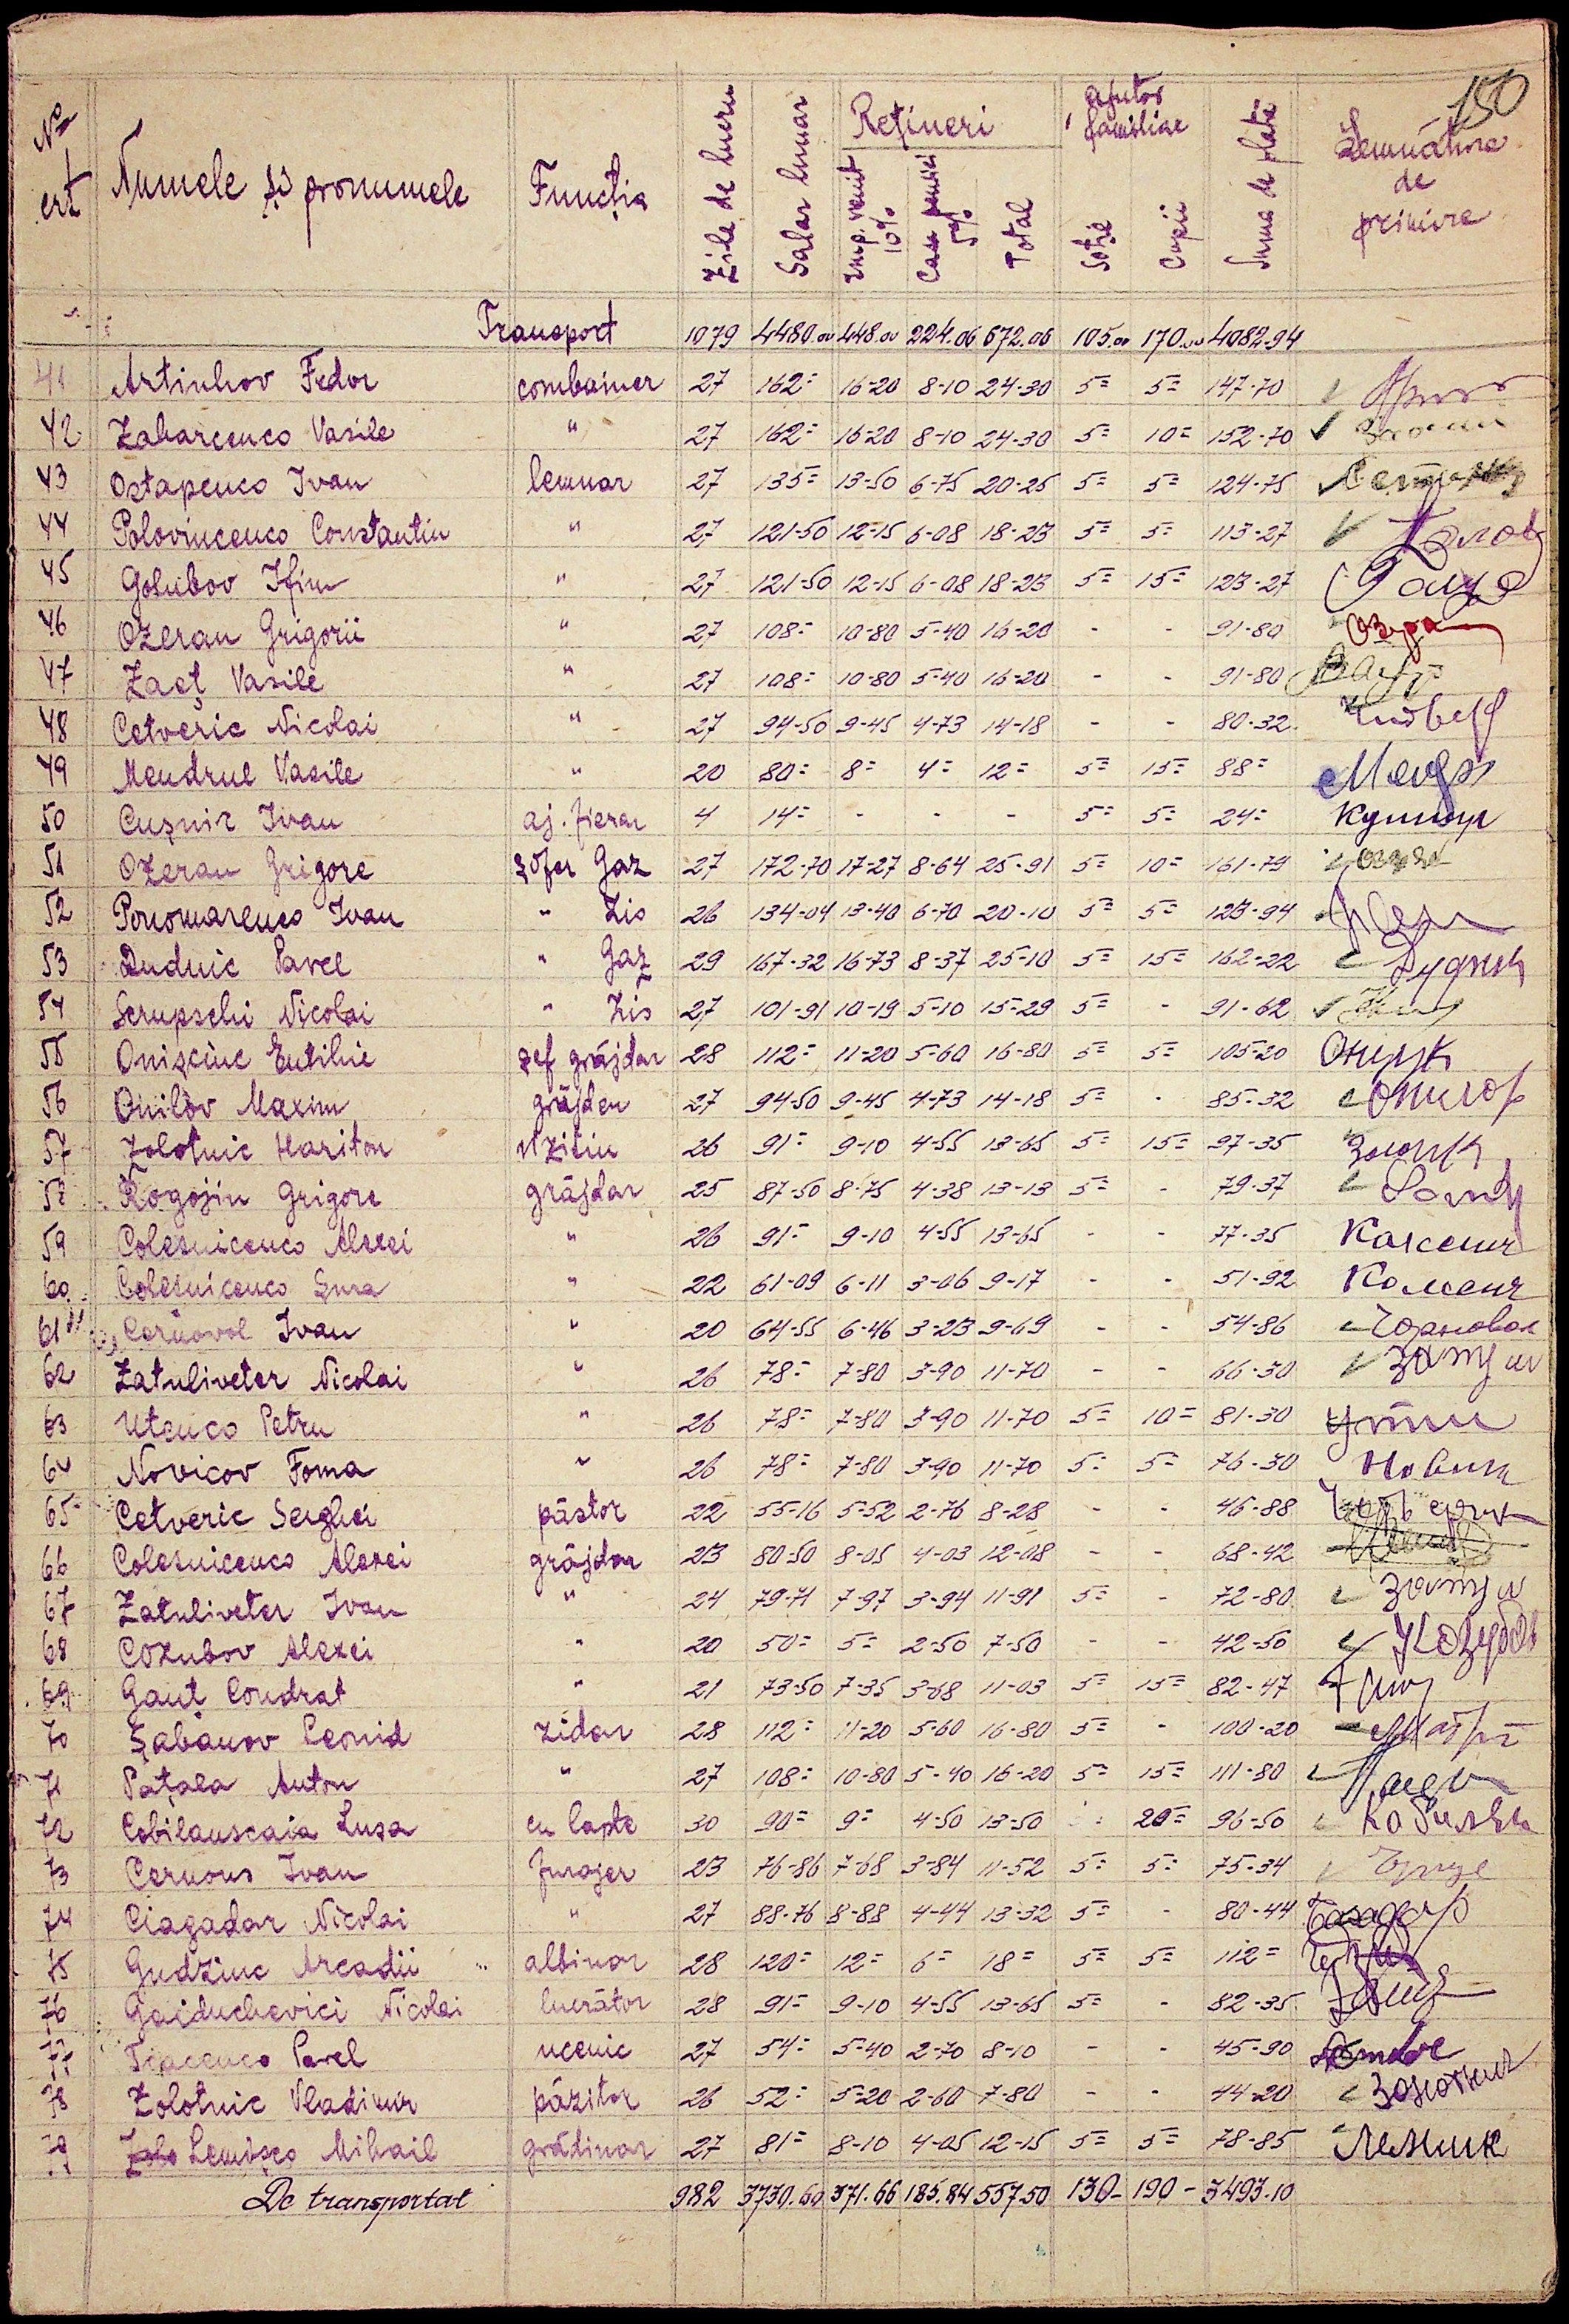 150
No crt Numele și pronumele Funcția Zile de lucru Salar lunar Rețineri Imp. venit 10% Casa pensiei 5% Total Ajutor familiar Soție Copii Suma de plată Semnătura de primire
Transport 1079 4480.00 448.00 224.06 672.06 105.00 170.00 4082.94
41 Artinhov Fedor combainer 27 162= 16-20 8-10 24-30 5= 5= 147-70
42 Zaharcenco Vasile " 27 162= 16-20 8-10 24-30 5= 10= 152-70
43 Ostapenco Ivan lemnar 27 135= 13-50 6-75 20-25 5= 5= 124-75
44 Polovincenco Constantin " 27 121-50 12-15 6-08 18-23 5= 5= 113-27
45 Golubov Ifim " 27 121-50 12-15 6-08 18-23 5= 15= 123-27
46 Ozeran Grigorii " 27 108= 10-80 5-40 16-20 - - 91-80
47 Zaeț Vasile " 27 108= 10-80 5-40 16-20 - - 91-80
48 Cetveric Nicolai " 27 94-50 9-45 4-73 14-18 - - 80-32
49 Mendrul Vasile " 20 80= 8= 4= 12= 5= 15= 88=
50 Cușnir Ivan aj. fierar 4 14= - - - 5= 5= 24= Кушнир
51 Ozeran Grigore șofer Gaz 27 172-70 17-27 8-64 25-91 5= 10= 161-79
52 Ponomarenco Ivan " Zis 26 134-04 13-40 6-70 20-10 5= 5= 123-94
53 Dudnic Pavel " Gaz 29 167-32 16-73 8-37 25-10 5= 15= 162-22
54 Scrupschi Nicolai " Zis 27 101-91 10-19 5-10 15-29 5= - 91-62
55 Onișciuc Eutihie șef grăjdar 28 112= 11-20 5-60 16-80 5= 5= 105-20
56 Onilov Maxim grăjder 27 94-50 9-45 4-73 14-18 5= - 85-32
57 Zolotnic Hariton vizitiu 26 91= 9-10 4-55 13-65 5= 15= 97-35
58 Rogojin Grigore grăjdar 25 87-50 8-75 4-38 13-13 5= - 79-37
59 Colesnicenco Alexei " 26 91= 9-10 4-55 13-65 - - 77-35
60 Colesnicenco Șura " 22 61-09 6-11 3-06 9-17 - - 51-92
61 Cernovol Ivan " 20 64-55 6-46 3-23 9-69 - - 54-86 Черновол
62 Zatuliveter Nicolai " 26 78= 7-80 3-90 11-70 - - 66-30
63 Utenco Petru " 26 78= 7-80 3-90 11-70 5= 10= 81-30
64 Novicov Foma " 26 78= 7-80 3-90 11-70 5= 5= 76-30 Новик
65 Cetveric Serghei păstor 22 55-16 5-52 2-76 8-28 - - 46-88
66 Colesnicenco Alexei grăjdar 23 80-50 8-05 4-03 12-08 - - 68-42
67 Zatuliveter Ivan " 24 79-71 7-97 3-94 11-91 5= - 72-80
68 Cozubov Alexei " 20 50= 5= 2-50 7-50 - - 42-50 Козубов
69 Gauț Condrat " 21 73-50 7-35 3-68 11-03 5= 15= 82-47
70 Șabanov Leonid zidar 28 112= 11-20 5-60 16-80 5= - 100-20
71 Pațala Anton " 27 108= 10-80 5-40 16-20 5= 15= 111-80
72 Cobileanscaia Lușa cu lapte 30 90= 9= 4-50 13-50 20= 96-50
73 Cernous Ivan furajer 23 76-86 7-68 3-84 11-52 5= 5= 75-34
74 Ciagadar Nicolai " 27 88-76 8-88 4-44 13-32 5= - 80-44
75 Gudziuc Arcadii albinar 28 120= 12= 6= 18= 5= 5= 112=
76 Gaiduchevici Nicolai lucrător 28 91= 9-10 4-55 13-65 5= - 82-35
77 Tcacenco Pavel ucenic 27 54= 5-40 2-70 8-10 - - 45-90
78 Zolotnic Vladimir păzitor 26 52= 5-20 2-60 7-80 - - 44-20
79 Lemișco Mihail grădinar 27 81= 8-10 4-05 12-15 5= 5= 78-85
De transportat 982 3730.60 371.66 185.84 557.50 130- 190- 3493.10